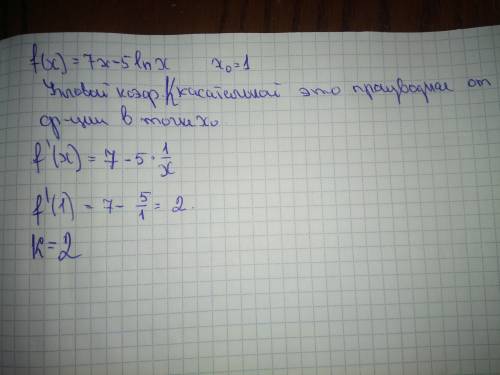 f(x) = 7x - 5 ln x x₀ = 1
Угловой коэф. K касательной это производная от
ф-ции в точке x₀.
f'(x) = 7 - 5 · 1/x
f'(1) = 7 - 5/1 = 2.
K = 2